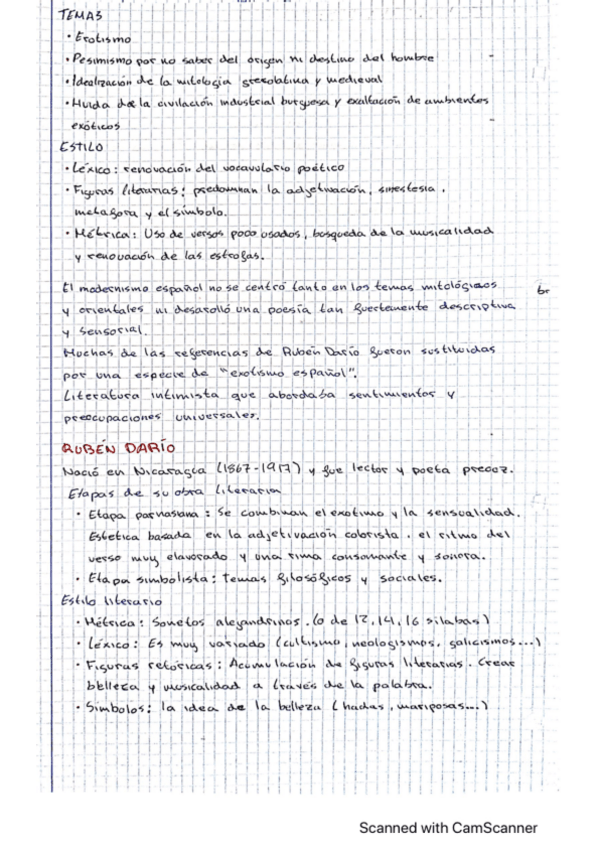 TEMAS
• Erotismo
• Pesimismo por no saber del origen ni destino del hombre
• Idealización de la mitología grecolatina y medieval
• Huida de la civilación industrial burguesa y exaltación de ambientes
exóticos
ESTILO
• Léxico: renovación del vocavulario poético
• Figuras literarias: predominan la adjetivación, sinestesia,
metafora y el símbolo.
• Métrica: Uso de versos poco usados, bosqueda de la musicalidad
y renovación de las estrofas.
El modernismo español no se centró tanto en los temas mitológicos
y orientales ni desarolló una poesía tan fuertemente descriptiva
y sensorial.
Muchas de las referencias de Rubén Darío fueron sustituidas
por una especie de "exotismo español".
Literatura intimista que abordaba sentimientos y
preocupaciones universales.
RUBÉN DARÍO
Nació en Nicaragua (1867-1917) y fue lector y poeta precoz.
Etapas de su obra literaria
• Etapa parnasiana: Se combinan el exotimo y la sensualidad.
Estética basada en la adjetivación colorista, el ritmo del
verso muy elavorado y una rima consonante y sonora.
• Etapa simbolista: Temas filosóficos y sociales.
Estilo literario
• Métrica: Sonetos alejandrinos. (o de 12, 14, 16 silabas)
• Léxico: Es muy variado (cultismo, neologismos, galicismos...)
• Figuras retóricas: Acumulación de figuras literarias. Crear
belleza y musicalidad a través de la palabra.
• Símbolos: la idea de la belleza (hadas, mariposas...)
Scanned with CamScanner